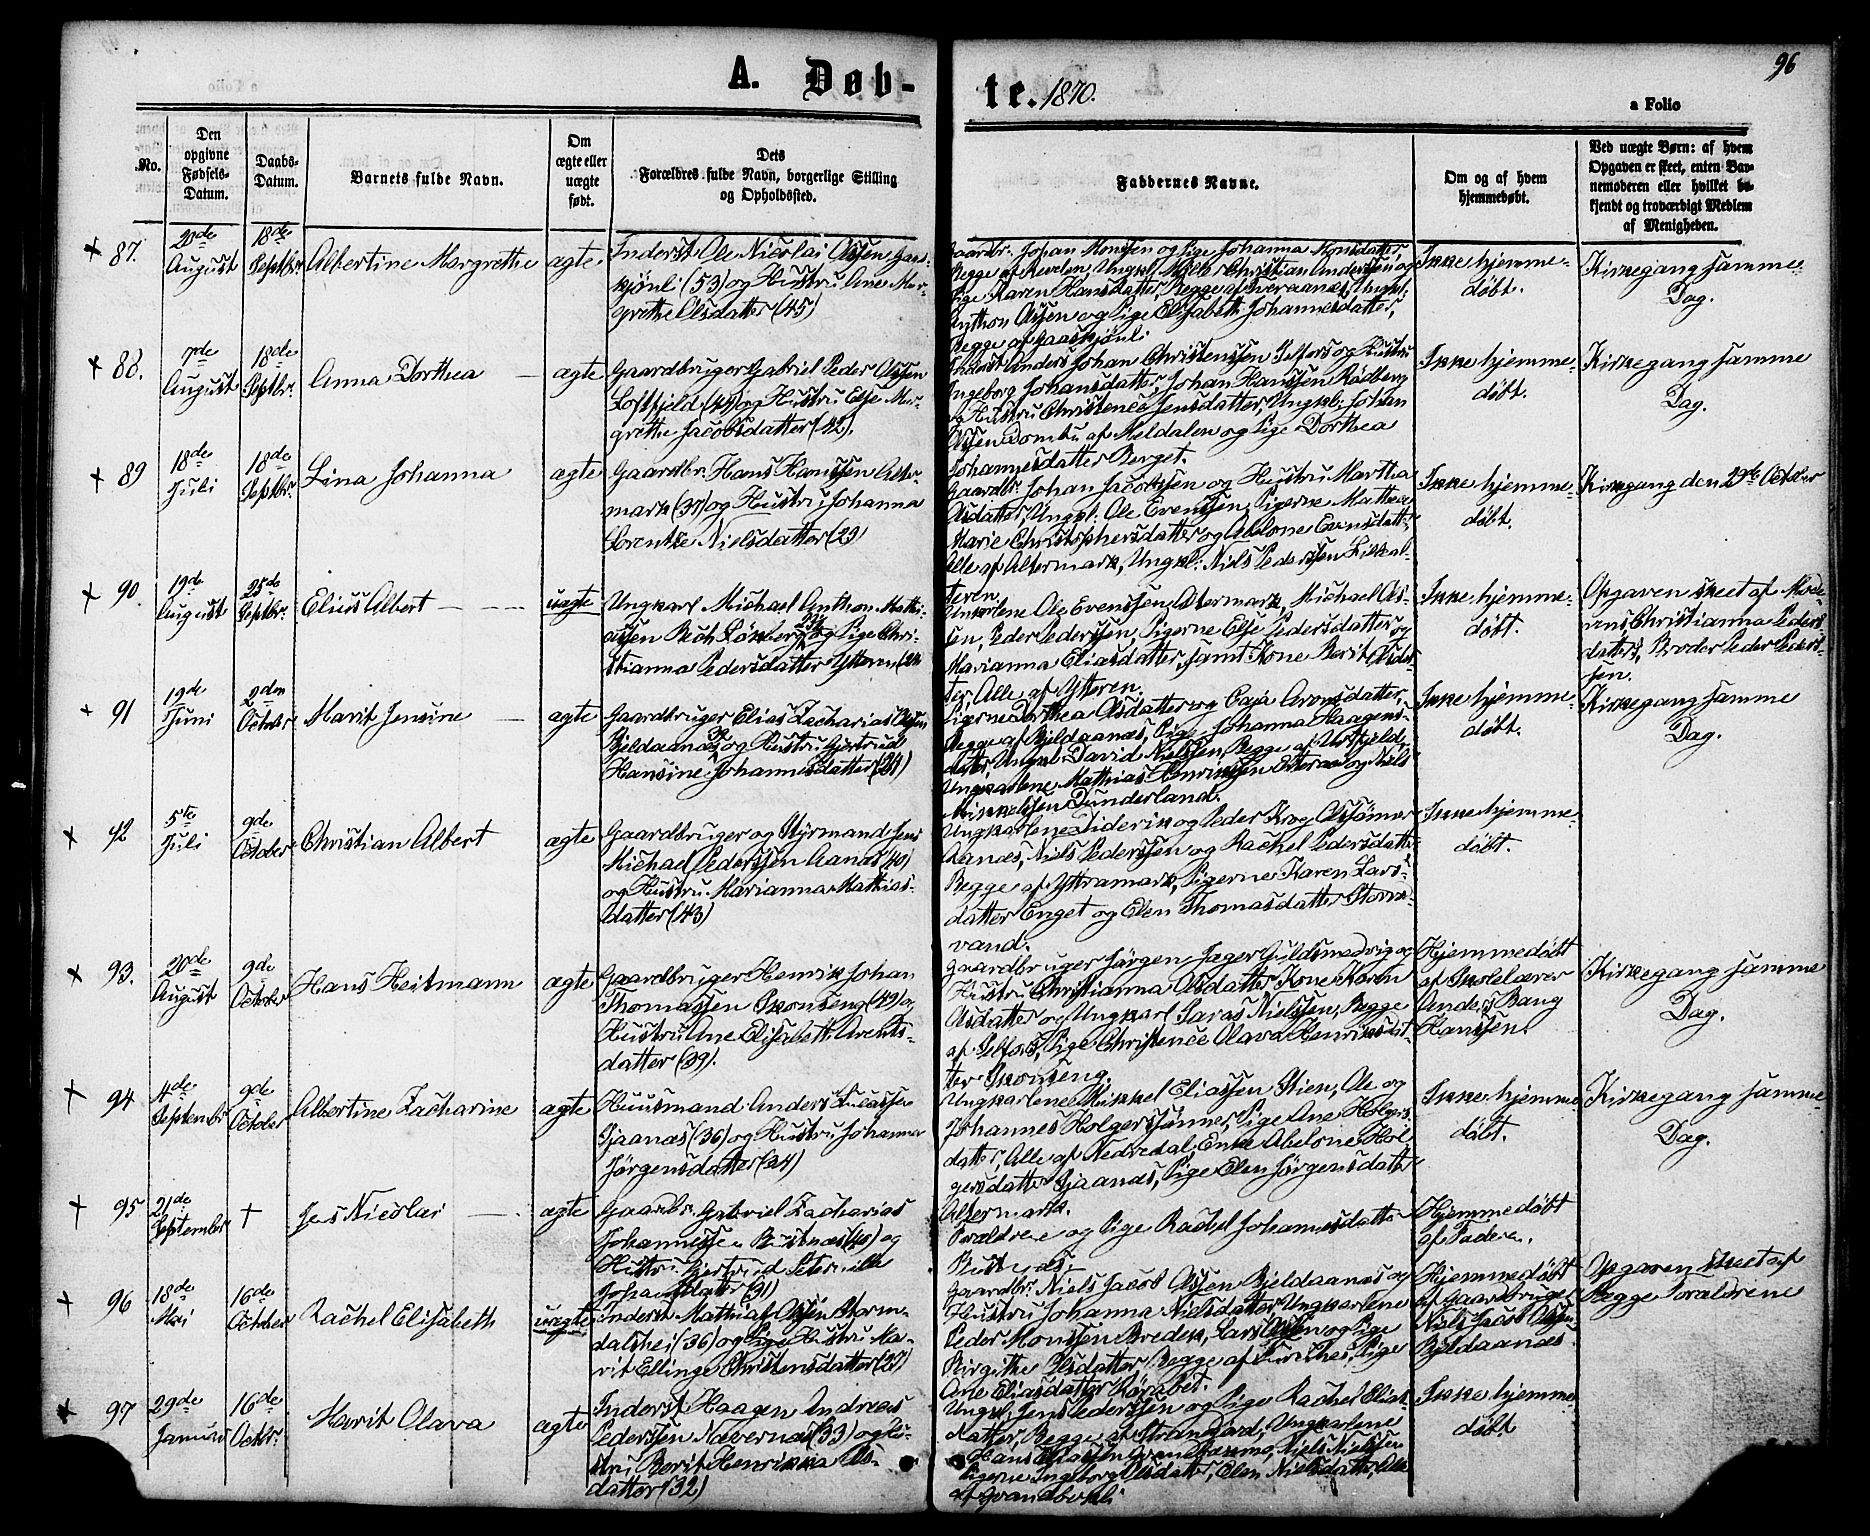 96
A. Døb-
te. 1870.
a Folio
No.
Den opgivne Fødsels-Datum.
Daabs-Datum.
Barnets fulde Navn.
Om ægte eller uægte født.
Dets
Forældres fulde Navn, borgerlige Stilling
og Opholdssted.
Faddernes Navne.
Om og af hvem
hjemmedøbt.
Ved uægte Børn: af hvem
Opgaven er skeet, enten Bar-
nemoderen eller hvilket be-
kjendt og troværdigt Medlem
af Menigheden.
+ 87. 20de August 18de Septbr Albertine Margrethe ægte
Inderst Ole Nicolai Olssen Gaas-
kjönli (53) og Hustru Ane Mar-
grethe Olsdatter (45)
Gaardbr. Johan Monssen og Pige Johanna Monsdatter,
Begge af Revelen, Ungk. Niels Christian Anderssen og
Pige Karen Hansdatter, Begge af Sveraanes, Ungk.
Anthon Olssen og Pige Elisabeth Johannesdatter,
Begge af Gaaskjönli
Ikke hjemme-
døbt.
Kirkegang samme
Dag.
+ 88. 7de August 18de Septbr. Anna Dorthea — ægte
Gaardbruger Gabriel Peder Olssen
Loftfjeld (44) og Hustru Else Mar-
grethe Jacobsdatter (42).
Inderst Anders Johan Christenssen Selfors og Hustru
Ingeborg Johansdatter, Johan Hanssen Rödberg
og Hustru Christence Jensdatter, Ungk. Johan
Olssen Dombu af Meldalen og Pige Dorthea
Johannesdatter Berget.
Ikke hjemme-
døbt.
Kirkegang samme
Dag.
+ 89 18de Juli 18de Septbr. Lina Johanna ægte
Gaardbr. Hans Hanssen Alter-
mark (37) og Hustru Johanna
Lorentse Nielsdatter (29)
Gaardbr. Johan Jacobssen og Hustru Martha
Olsdatter, Ungk. Ole Evenssen, Pigerne Mathea
Marie Christophersdatter og Abelone Evensdatt.,
Alle af Altermark, Ungk. Niels Pederssen Lilleal-
teren.
Ikke hjemme-
døbt.
Kirkegang den 29de October
+ 90. 19de August 25de Septbr. Elius Albert — — — uægte
Ungkarl Michael Anthon Mathi-
assen Buch Lökberg og Pige Chri-
stianna Pedersdatter Ytteren (24
Ungkarlene Ole Evenssen Altermark, Michael Ol-
sen, Peder Pederssen, Pigerne Else Pedersdatter og
Marianna Eliasdatter samt Kone Berit Olsdat-
ter, Alle af Ytteren.
Ikke hjemme-
døbt.
Opgaven skeet af Mode-
rens Christianna Peders-
datters Broder Peder Peders-
sen.
+ 91 19de Juni 2den October Marit Jensine — ægte
Gaardbruger Elias Zacharias Olssen
Bjeldaanæs og Hustru Gjertrud
Hansine Johannesdatter (24)
Pigerne Dorthea Olsdatter og Caja Aronsdatter,
Begge af Bjeldaanæs, Pige Johanna Haagens-
datter, Ungk. David Nielssen, Begge af Urtfjeld,
Ungkarlene Mathias Henrikssen Esternæs og Niels
Mikkelssen Dunderland.
Ikke hjemme-
døbt.
Kirkegang samme
Dag.
+ 42 5te Juli 9de October Christian Albert ægte
Gaardbruger og Styrmand Jens
Michael Pederssen Aanæs (40)
og Hustru Marianna Mathias-
datter (43)
Ungkarlene Diderik og Peder Krog Olssönner
Aanæs, Niels Pederssen og Rachel Pedersdatt.
Begge af Yttramark, Pigerne Karen Lars-
datter Enget og Elen Thomasdatter Storm-
vand.
Ikke hjemme-
døbt.
+ 93. 20de August 9de October Hans Heitmann ægte
Gaardbruger Henrik Johan
Thomassen Skonseng (49) og
Hustru Ane Elisabeth Arents-
datter (39).
Gaardbruger Jörgen Jæger Guldsmedvig og
Hustru Christianna Olsdatter, Kone Karen
Olsdatter og Ungkarl Paras Nielssen, Begge
af Selfors, Pige Christence Olava Henriksdat-
ter Skonseng.
Hjemmedøbt
af Skolelærer
Anders Bang
Hanssen.
Kirkegang samme
Dag.
+ 94 4de September 9de October Albertine Zacharine ægte
Huusmand Anders Lucassen
Sjaanæs (36) og Hustru Johanna
Jörgensdatter (34)
Ungkarlene Mikkel Eliassen Stien, Ole og
Johannes Holgerssönner, Pige Ane Holgers-
datter, Alle af Nedredal, Enke Abelone Hol-
gersdatter Sjaanæs, Pige Elen Jörgensdatter
Altermark.
Ikke hjemme-
døbt.
Kirkegang samme
Dag.
+ 95 21de September + Jens Nicolai — ægte
Gaardbr. Gabriel Zacharias
Johannessen Bustnæs (40) og
Hustru Gjertrud Peternille
Johansdatter (31)
Forældrene og Pige Rachel Johannesdatter
Bustnæs.
Hjemmedøbt
af Faderen.
+ 96 18de Mai 16de October Rachel Elisabeth uægte
Inderst Mathias Olssen Storm-
dalshei (36) og Pige Hustru Ma-
rit Ellinge Christensdatter (27)
Gaardbr. Niels Jacob Olssen Bjeldaanæs og
Hustru Johanna Nielsdatter, Ungkarlene
Peder Monssen Bredek, Lars Olssen og Pige
Birgithe Olsdatter, Begge af Pige
Ane Eliasdatter Rörabet.
Hjemmedøbt
af Gaardbruger
Niels Jacob Olssen
Bjeldaanæs
Opgaven skeet af
Begge Forældrene
+ 97 29de Januar 16de Octbr. Marit Olava ægte
Inderst Haagen Andreas
Pederssen Nævernæs (33) og Hu-
stru Berit Henrikka Ols-
datter (32)
Ungk. Jens Pederssen og Pige Rachel Elias-
datter, Begge af Strandjord, Ungkarlene
Hans Eliassen Grandhammer, Niels Nielssen
Pigerne Ingeborg Olsdatter, Elen Nielsdatter, Alle
af Grandbokli
Ikke hjemme
døbt.